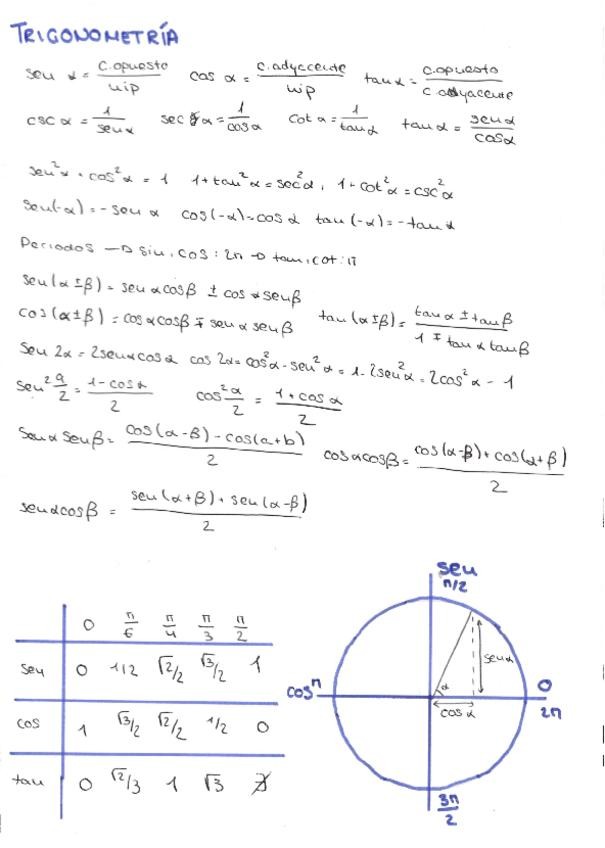 TRIGONOMETRÍA
sen α = c.opuesto/hip cos α = c.adyacente/hip tan α = c.opuesto/c adyacente
csc α = 1/sen α sec α = 1/cos α cot α = 1/tan α tan α = sen α/cos α
sen²α + cos²α = 1 1 + tan²α = sec²α, 1 + cot²α = csc²α
sen(-α) = -sen α cos(-α) = cos α tan(-α) = -tan α
Periodos → sin, cos: 2π → tan, cot: π
sen(α ± β) = sen α cos β ± cos α sen β
cos(α ± β) = cos α cos β ∓ sen α sen β tan(α ± β) = tan α ± tan β/1 ∓ tan α tan β
sen 2α = 2 sen α cos α cos 2α = cos²α - sen²α = 1 - 2sen²α = 2cos²α - 1
sen² α/2 = 1 - cos α/2 cos² α/2 = 1 + cos α/2
sen α sen β = cos(α - β) - cos(a + b)/2 cos α cos β = cos(α - β) + cos(α + β)/2
sen α cos β = sen(α + β) + sen(α - β)/2
0 π/6 π/4 π/3 π/2
sen 0 1/2 √2/2 √3/2 1
cos 1 √3/2 √2/2 1/2 0
tan 0 √2/3 1 √3 ∄
sen
π/2
sen α
α
cos π
cos α
0
2π
3π/2